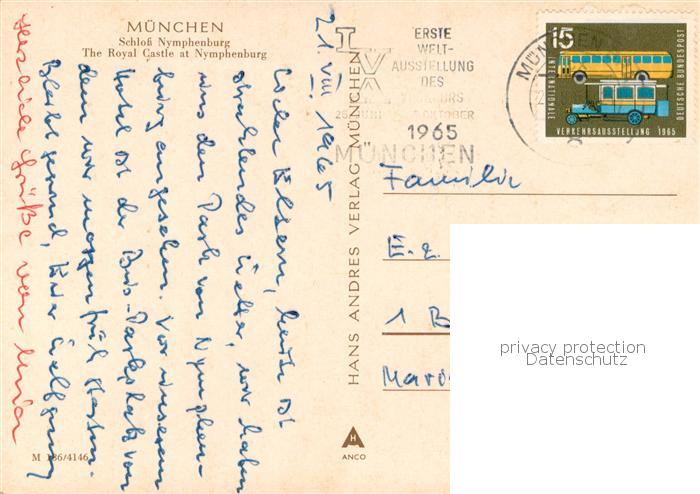 MÜNCHEN
Schloß Nymphenburg
The Royal Castle at Nymphenburg
21. VIII 1965
Liebe Eltern, heute ist
strahlendes Wetter, wir haben
uns den Park von Nymphen-
burg angesehen. Vor unserem
Hotel ist der Bus-Parkplatz von
dem wir morgen früh starten.
Bleibt gesund, Euer Wolfgang
Herzliche Grüße von
M 136/4146
HANS ANDRES VERLAG MÜNCHEN
ANCO
IVA
ERSTE
WELT-
AUSSTELLUNG
DES
VERKEHRS
25. JUNI OKTOBER
1965
MÜNCHEN
MÜNCHEN
15
INTERNATIONALE
VERKEHRSAUSSTELLUNG 1965
DEUTSCHE BUNDESPOST
Familie
E-2.
1 B
privacy protection
Datenschutz